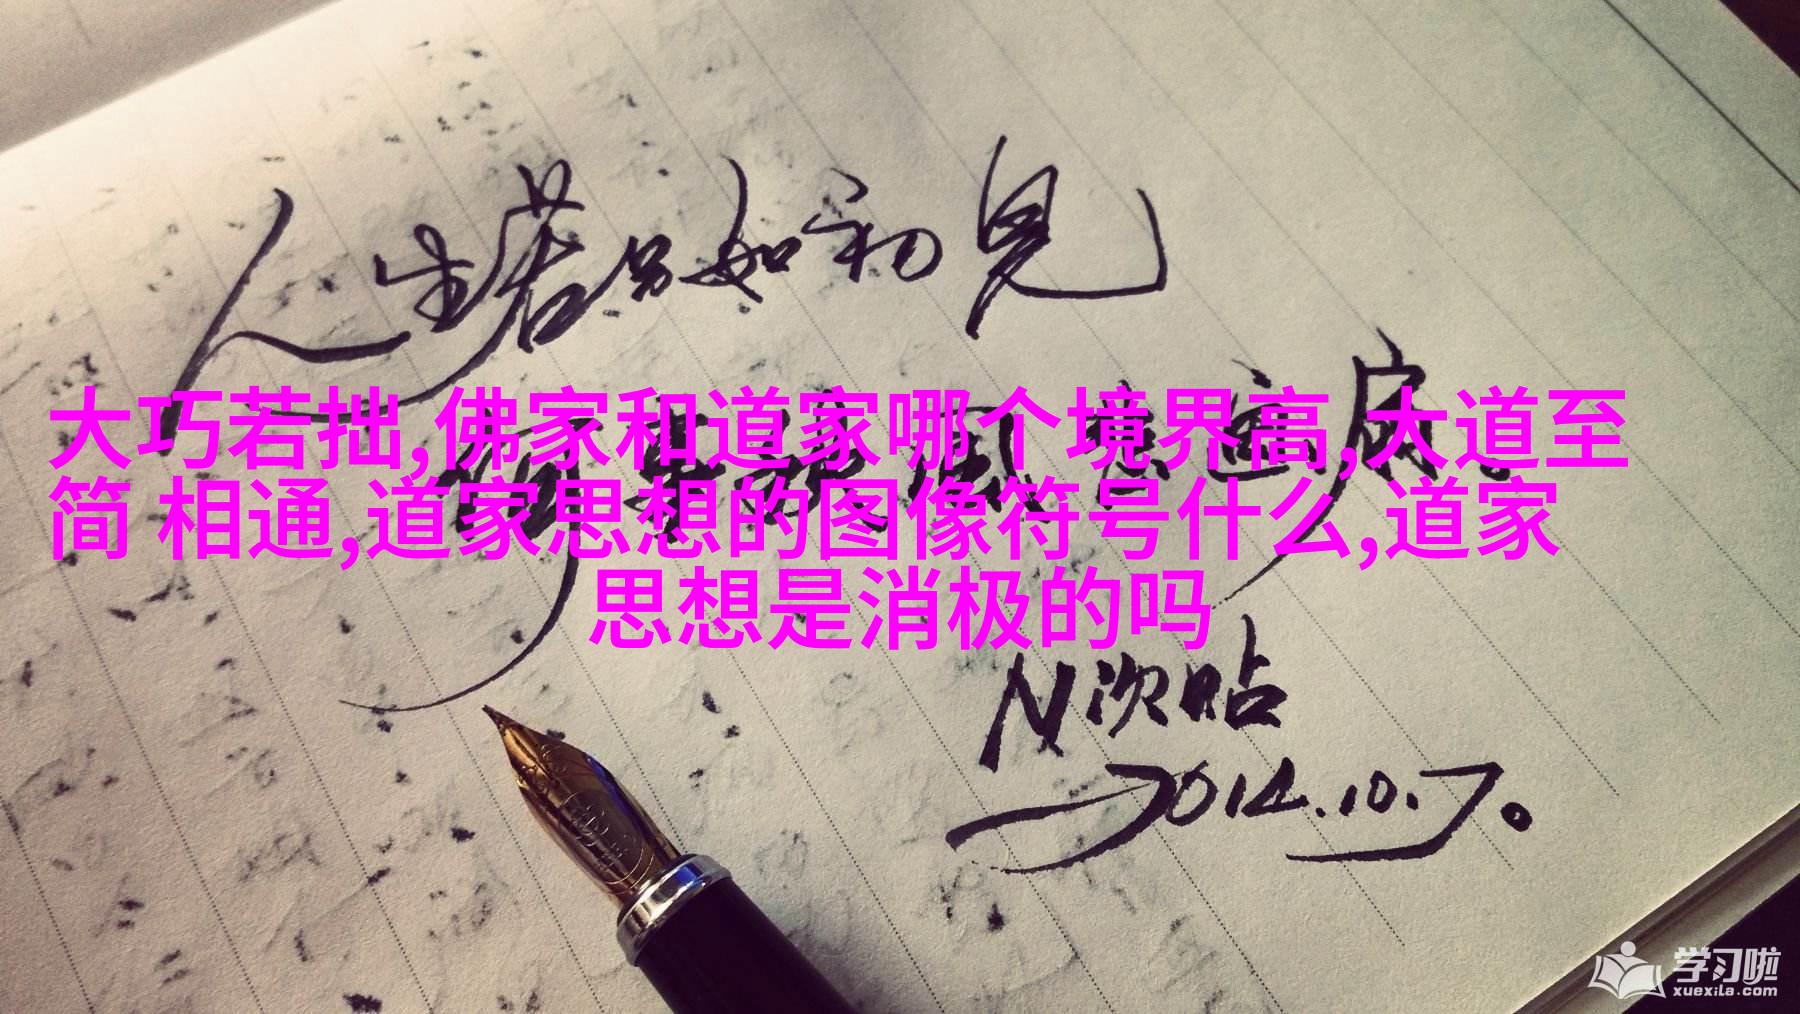 人生若只如初见
大巧若拙,佛家和道家哪个境界高,大道至
简 相通,道家思想的图像符号什么,道家
思想是消极的吗
N次贴
2014.10.7。
学习啦
xuexila.com